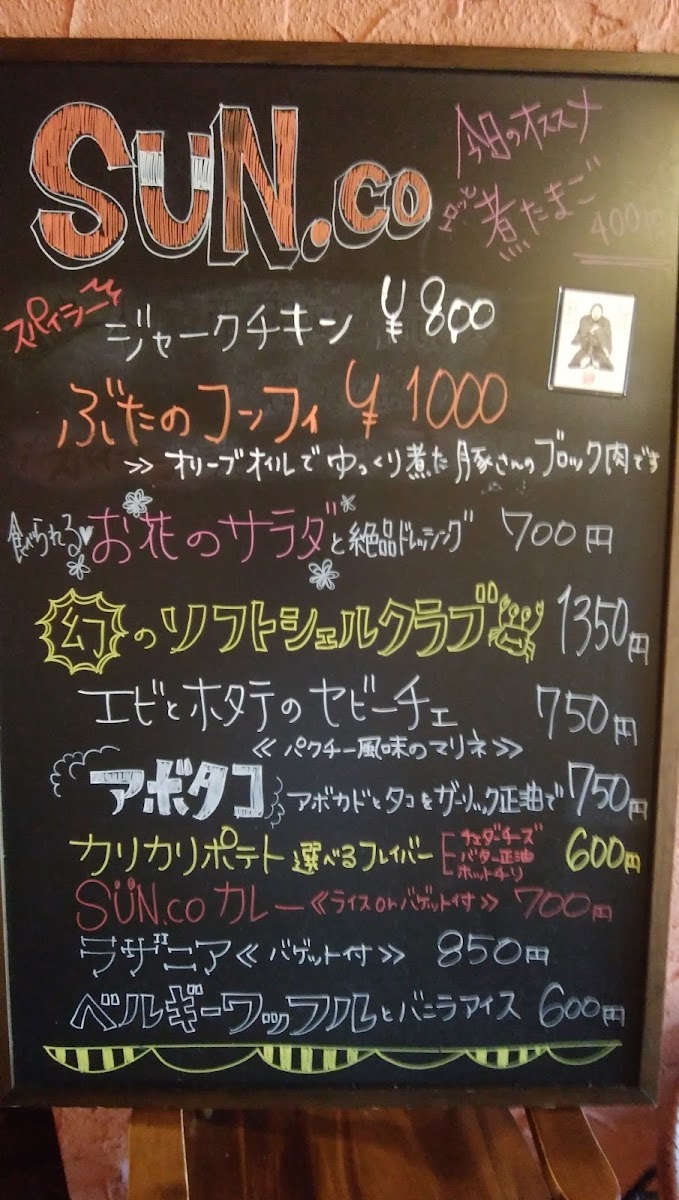 SUN.co
今日のオススメ
トロッと煮たまご
400円
スパイシー
ジャークチキン ¥800
ぶたのコンフィ ¥1000
≫ オリーブオイルでゆっくり煮た豚さんのブロック肉です
食べられる♥お花のサラダと絶品ドレッシング 700円
幻のソフトシェルクラブ 1350円
エビとホタテのセビーチェ 750円
≪パクチー風味のマリネ≫
アボタコ アボカドとタコをガーリック正油で 750円
カリカリポテト 選べるフレイバー 600円
チェダーチーズ
バター正油
ホットチリ
SUN.co カレー ≪ライス or バゲット付≫ 700円
ラザニア ≪バゲット付≫ 850円
ベルギーワッフルとバニラアイス 600円